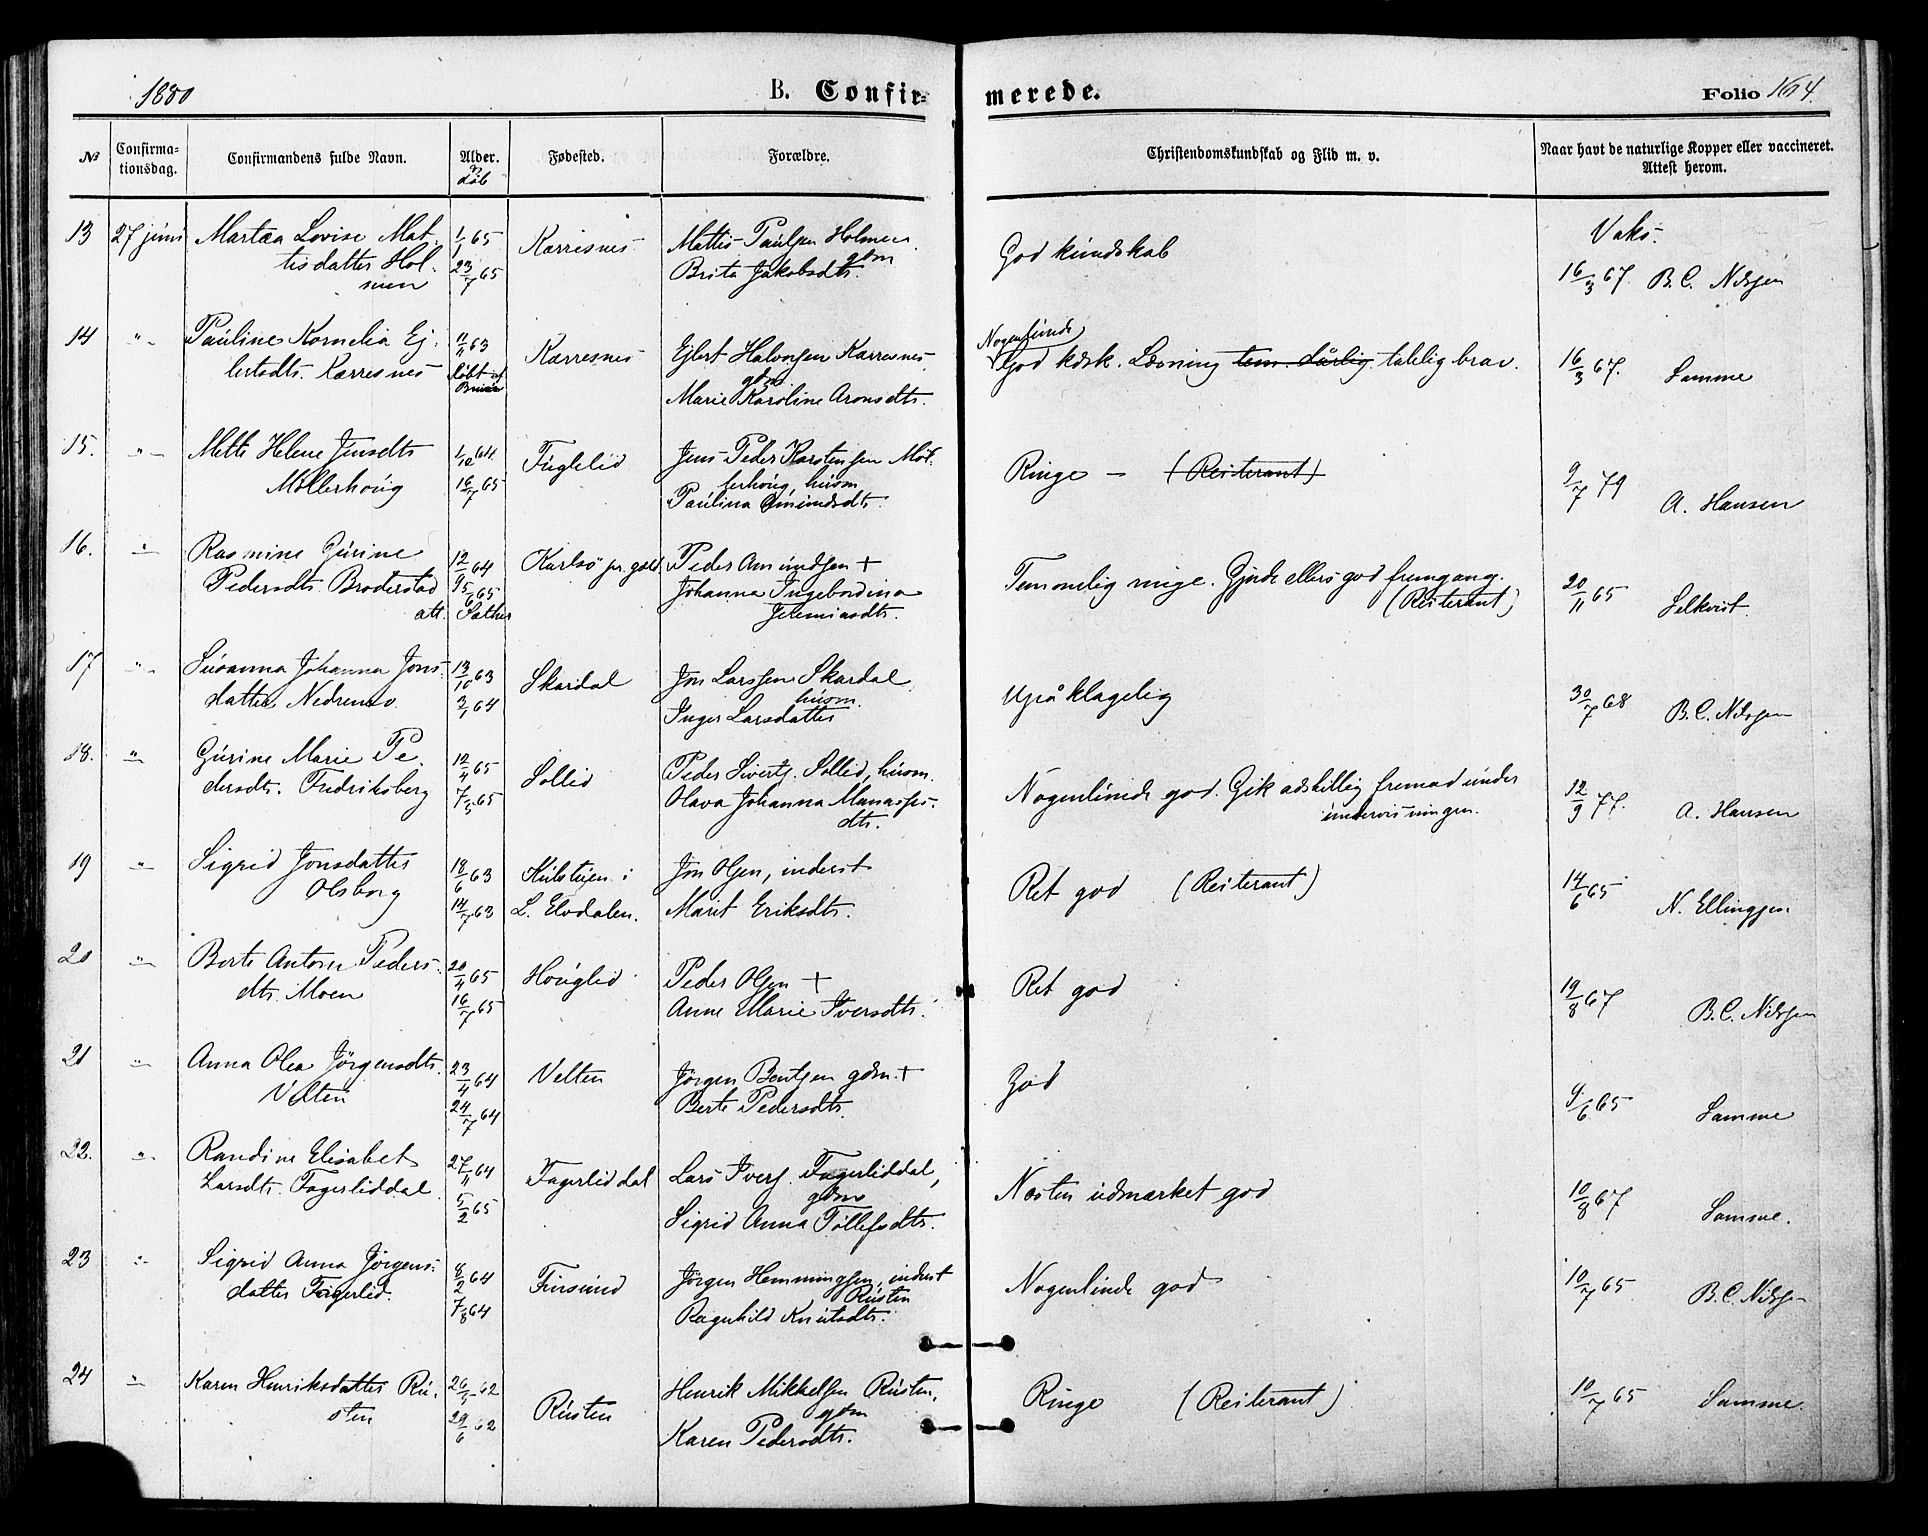 1880
B. Confir=
merede.
Folio 164.
№
Confirma=
tionsdag.
Confirmandens fulde Navn.
Alder.
og
døb
Fødested.
Forældre.
Christendomskundskab og Flid m. v.
Naar havt de naturlige Kopper eller vaccineret.
Attest herom.
13 27 juni Martea Lovise Mat-
tisdatter Hol-
men
1/1 65
23/7 65
Karresnes
Mattis Paulsen Holmen
gdm
Brita Jakobsdtr.
God kundskab
Vaks.
16/3 67. B. C. Nilssen
14 " Pauline Kornelia Ej-
lertsdtr. Karresnes
11/11 63
døbt af
Karresnes
Ejlert Halvorsen Karresnes
gdm.
Marie Karoline Aronsdtr.
Nogenlunde
God kdsk. Læsning tem. dårlig talelig brav.
16/3 67. Samme
15. " Mette Helene Jensdtr
Möllerhoug
1/10 64
16/7 65
Fuglelid
Jens Peder Karstensen Möl-
lerhoug, husm
Paulina Amundsdtr.
Ringe – (Reiterant)
9/7 79
A. Hansen
16. " Rasmine Gurine
Pedersdtr Broderstad
att. Sather
12/9 64
5/6 65
Karlsö pr.gjeld
Peder Amundsen +
Johanna Ingebordina
Jeremiasdtr.
Temmelig ringe. Gjorde ellers god fremgang.
(Reiterant)
20/11 65 Selkvist.
17 " Susanna Johanna Jons-
datter Nedremo
13/10 63
3/1 64
Skardal
Jon Larssen Skardal
husm.
Inger Larsdatter
Upåklagelig
30/7 68 B.C. Nilssen
18. " Gurine Marie Pe-
dersdtr. Fredriksberg
12/4 65
7/5 65
Sollid
Peder Siverts. Sollid, husm.
Olava Johanna Manasses-
dtr.
Nogenlunde god. Gik adskillig fremad under
undervisningen.
12/9 77. A. Hansen
19 " Sigrid Jonsdatter
Olsborg
18/6 63
14/7 63
Kulstuen i
L. Elvdalen.
Jon Olsen, inderst
Marit Eriksdtr.
Ret god (Reiterant)
14/6 65
N. Ellingsen
20 " Berte Antone Peders-
dtr. Moen
20/4 65
16/7 65
Houglid
Peder Olsen +
Anne Marie Iversdtr.
Ret god
19/8 67
B.C. Nilssen
21 " Anna Olea Jörgensdtr.
Velten
23/4 64
24/7 64
Velten
Jörgen Bentsen gdm. +
Berte Pedersdtr.
God
9/6 65
Samme
22. " Randine Elisabet
Larsdtr. Fagerliddal
27/11 64
5/2 65
Fagerliddal
Lars Ivers. Fagerliddal,
gdm
Sigrid Anna Tollefsdtr.
Næsten udmærket god
10/8 67
Samme.
23 " Sigrid Anna Jörgens-
datter Fagerlid.
8/2 64
7/8 64
Finsund
Jörgen Hemmingsen, inderst
Rusten
Ragnhild Knutsdtr.
Nogenlunde god
10/7 65 B.C. Nilssen
24 " Karen Henriksdatter Ru-
sten
26/5 62
29/6 62
Rusten
Henrik Mikkelsen Rusten,
gdm
Karen Pedersdtr.
Ringe (Reiterant)
10/7 65 Samme.